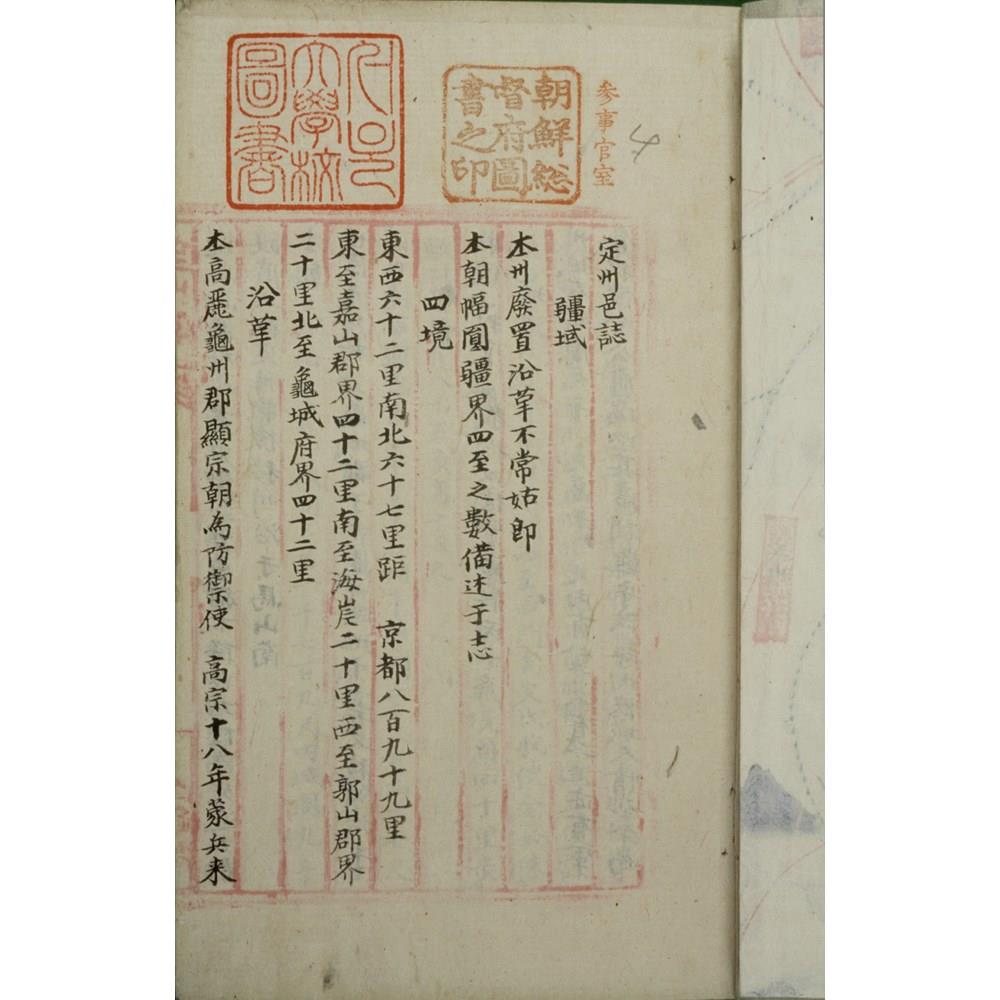 参事官室
4
朝鮮総
督府圖
書之印
大學校
圖書
定州邑誌
疆域
本州廢置沿革不常姑即
本朝幅圓疆界四至之數備述于志
四境
東西六十二里南北六十七里距 京都八百九十九里
東至嘉山郡界四十二里南至海岸二十里西至郭山郡界
二十里北至龜城府界四十二里
沿革
本高麗龜州郡顯宗朝為防禦使 高宗十八年蒙兵来